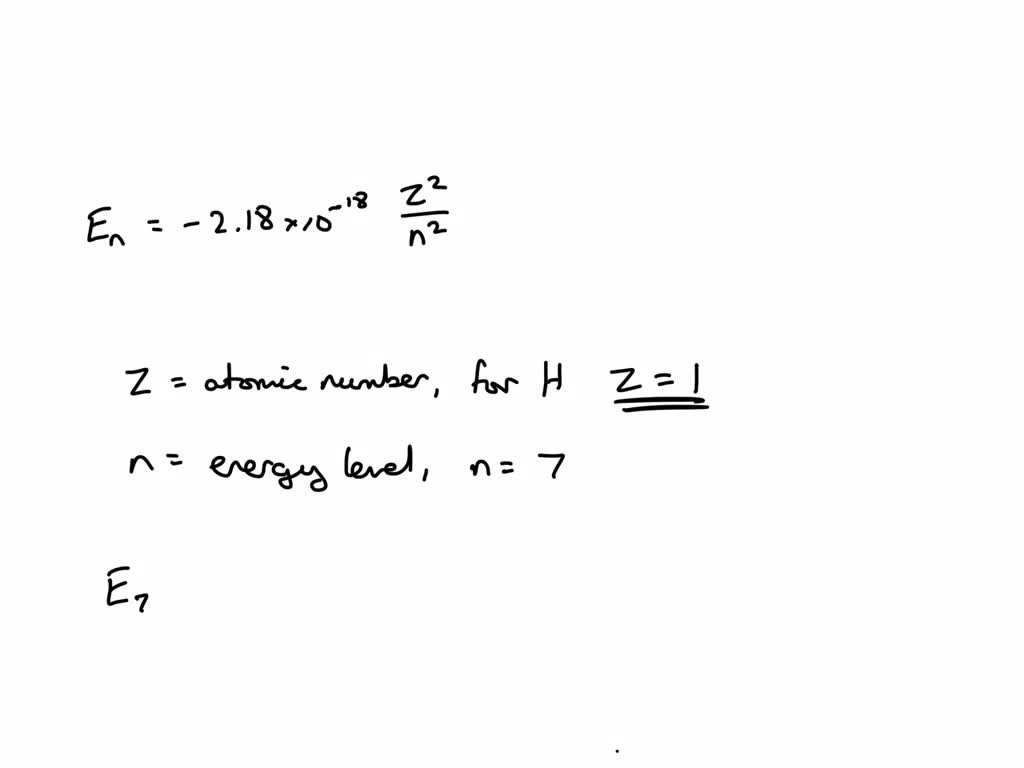 Eₙ = -2.18×10⁻¹⁸ Z²/n²
Z = atomic number, for H Z = 1
n = energy level, n = 7
E₇